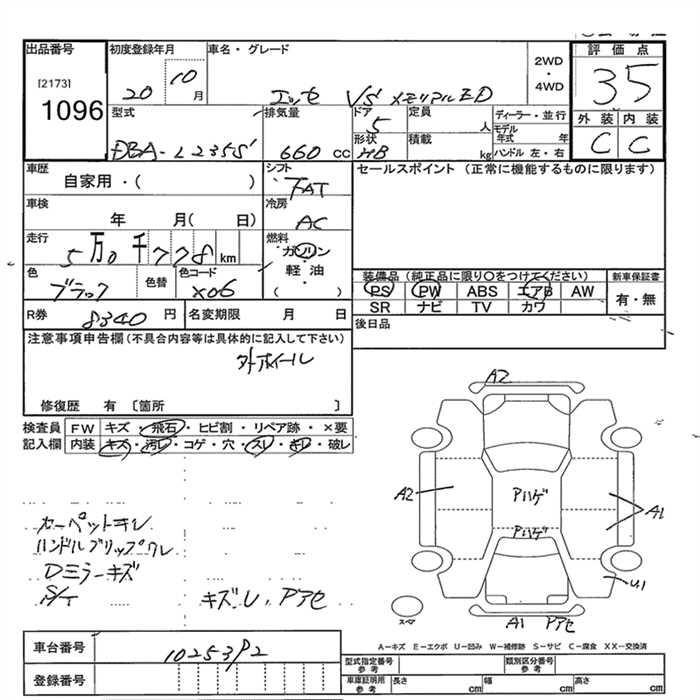 出品番号 初度登録年月 車名・グレード 2WD・4WD 評価点
[2173] 1096 20 10月 エッセ VS メモリアルED 35
型式 排気量 ドア 定員 ディーラー・並行 外装 内装
DBA-L235S 660cc 5 人 モデル年式 年 C C
形状 HB 積載 kg ハンドル 左・右
車歴 シフト セールスポイント(正常に機能するものに限ります)
自家用・( ) FAT
車検 冷房
年 月( 日) AC
走行 燃料
5万0千778km ガソリン
色 色替 色コード 軽油 装備品(純正品に限り○をつけてください) 新車保証書
ブラック X06 ・( ) PS PW ABS エアB AW 有・無
SR ナビ TV カワ
R券 8340円 名変期限 月 日 後日品
注意事項申告欄(不具合内容等は具体的に記入して下さい)
外ホイール
修復歴 有〔箇所 〕
検査員 FW キズ・飛石・ヒビ割・リペア跡・×要
記入欄 内装 キズ・汚レ・コゲ・穴・スレ・キレ・破レ
A2
A2 Pハゲ A1
Pハゲ
U1
カーペットキレ
ハンドルグリップワレ
Dミラーキズ
S/T キズU、Pアセ
スペア A1 Pアセ
A-キズ E-エクボ U-凹み W-補修跡 S-サビ C-腐食 XX-交換済
車台番号 10253P2
登録番号
型式指定番号 参考 類別区分番号 参考
車庫証明用 参考 長さ cm 幅 cm 高さ cm